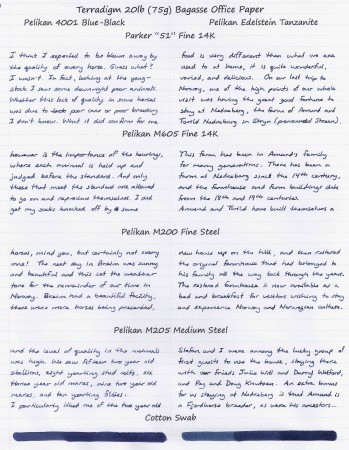 Terradigm 20lb (75g) Bagasse Office Paper
Pelikan 4001 Blue-Black
Pelikan Edelstein Tanzanite
Parker "51" Fine 14K
I think I expected to be blown away by
the quality of every horse. Guess what?
I wasn't. In fact, looking at the young-
stock I saw some downright poor animals.
Whether this lack of quality in some horses
was due to poor care or poor breeding
I don't know. What it did confirm for me
food is very different than what we are
used to at home, it is quite wonderful,
varied, and delicious. On our last trip to
Norway, one of the high points of our whole
visit was having the great good fortune to
stay at Nedreberg, the farm of Amund and
Torlid Nedreberg in Stryn (pronounced Streen).
Pelikan M605 Fine 14K
however is the importance of the hearings,
where each animal is held up and
judged before the standard. And only
those that meet the standard are allowed
to go on and reproduce themselves. I did
get my socks knocked off by some
This farm has been in Amund's family
for many generations. There has been a
farm at Nedreberg since the 14th century,
and the farmhouse and farm buildings date
from the 18th and 19th centuries.
Amund and Torlid have built themselves a
Pelikan M200 Fine Steel
horses, mind you, but certainly not every
one! The next day in Breim was sunny
and beautiful and this set the weather
tone for the remainder of our time in
Norway. Breim had a beautiful facility,
there were more horses being presented,
new house up on the hill, and then restored
the original farmhouse that had belonged to
his family all the way back through the years.
The restored farmhouse is now available as a
bed and breakfast for visitors wishing to stay
and experience Norway and Norwegian culture.
Pelikan M205 Medium Steel
and the level of quality in the animals
was high. We saw fifteen two year old
stallions, eight yearling stud colts, six
three year old mares, nine two year old
mares, and ten yearling fillies.
I particularly liked one of the two year old
Stefan and I were among the lucky group of
first guests to use the house, staying there
with our friends Julie Will and Darryl Watford,
and Peg and Doug Knutsen. An extra bonus
for us staying at Nedreberg is that Amund is
a Fjordhorse breeder, as were his ancestors...
Cotton Swab